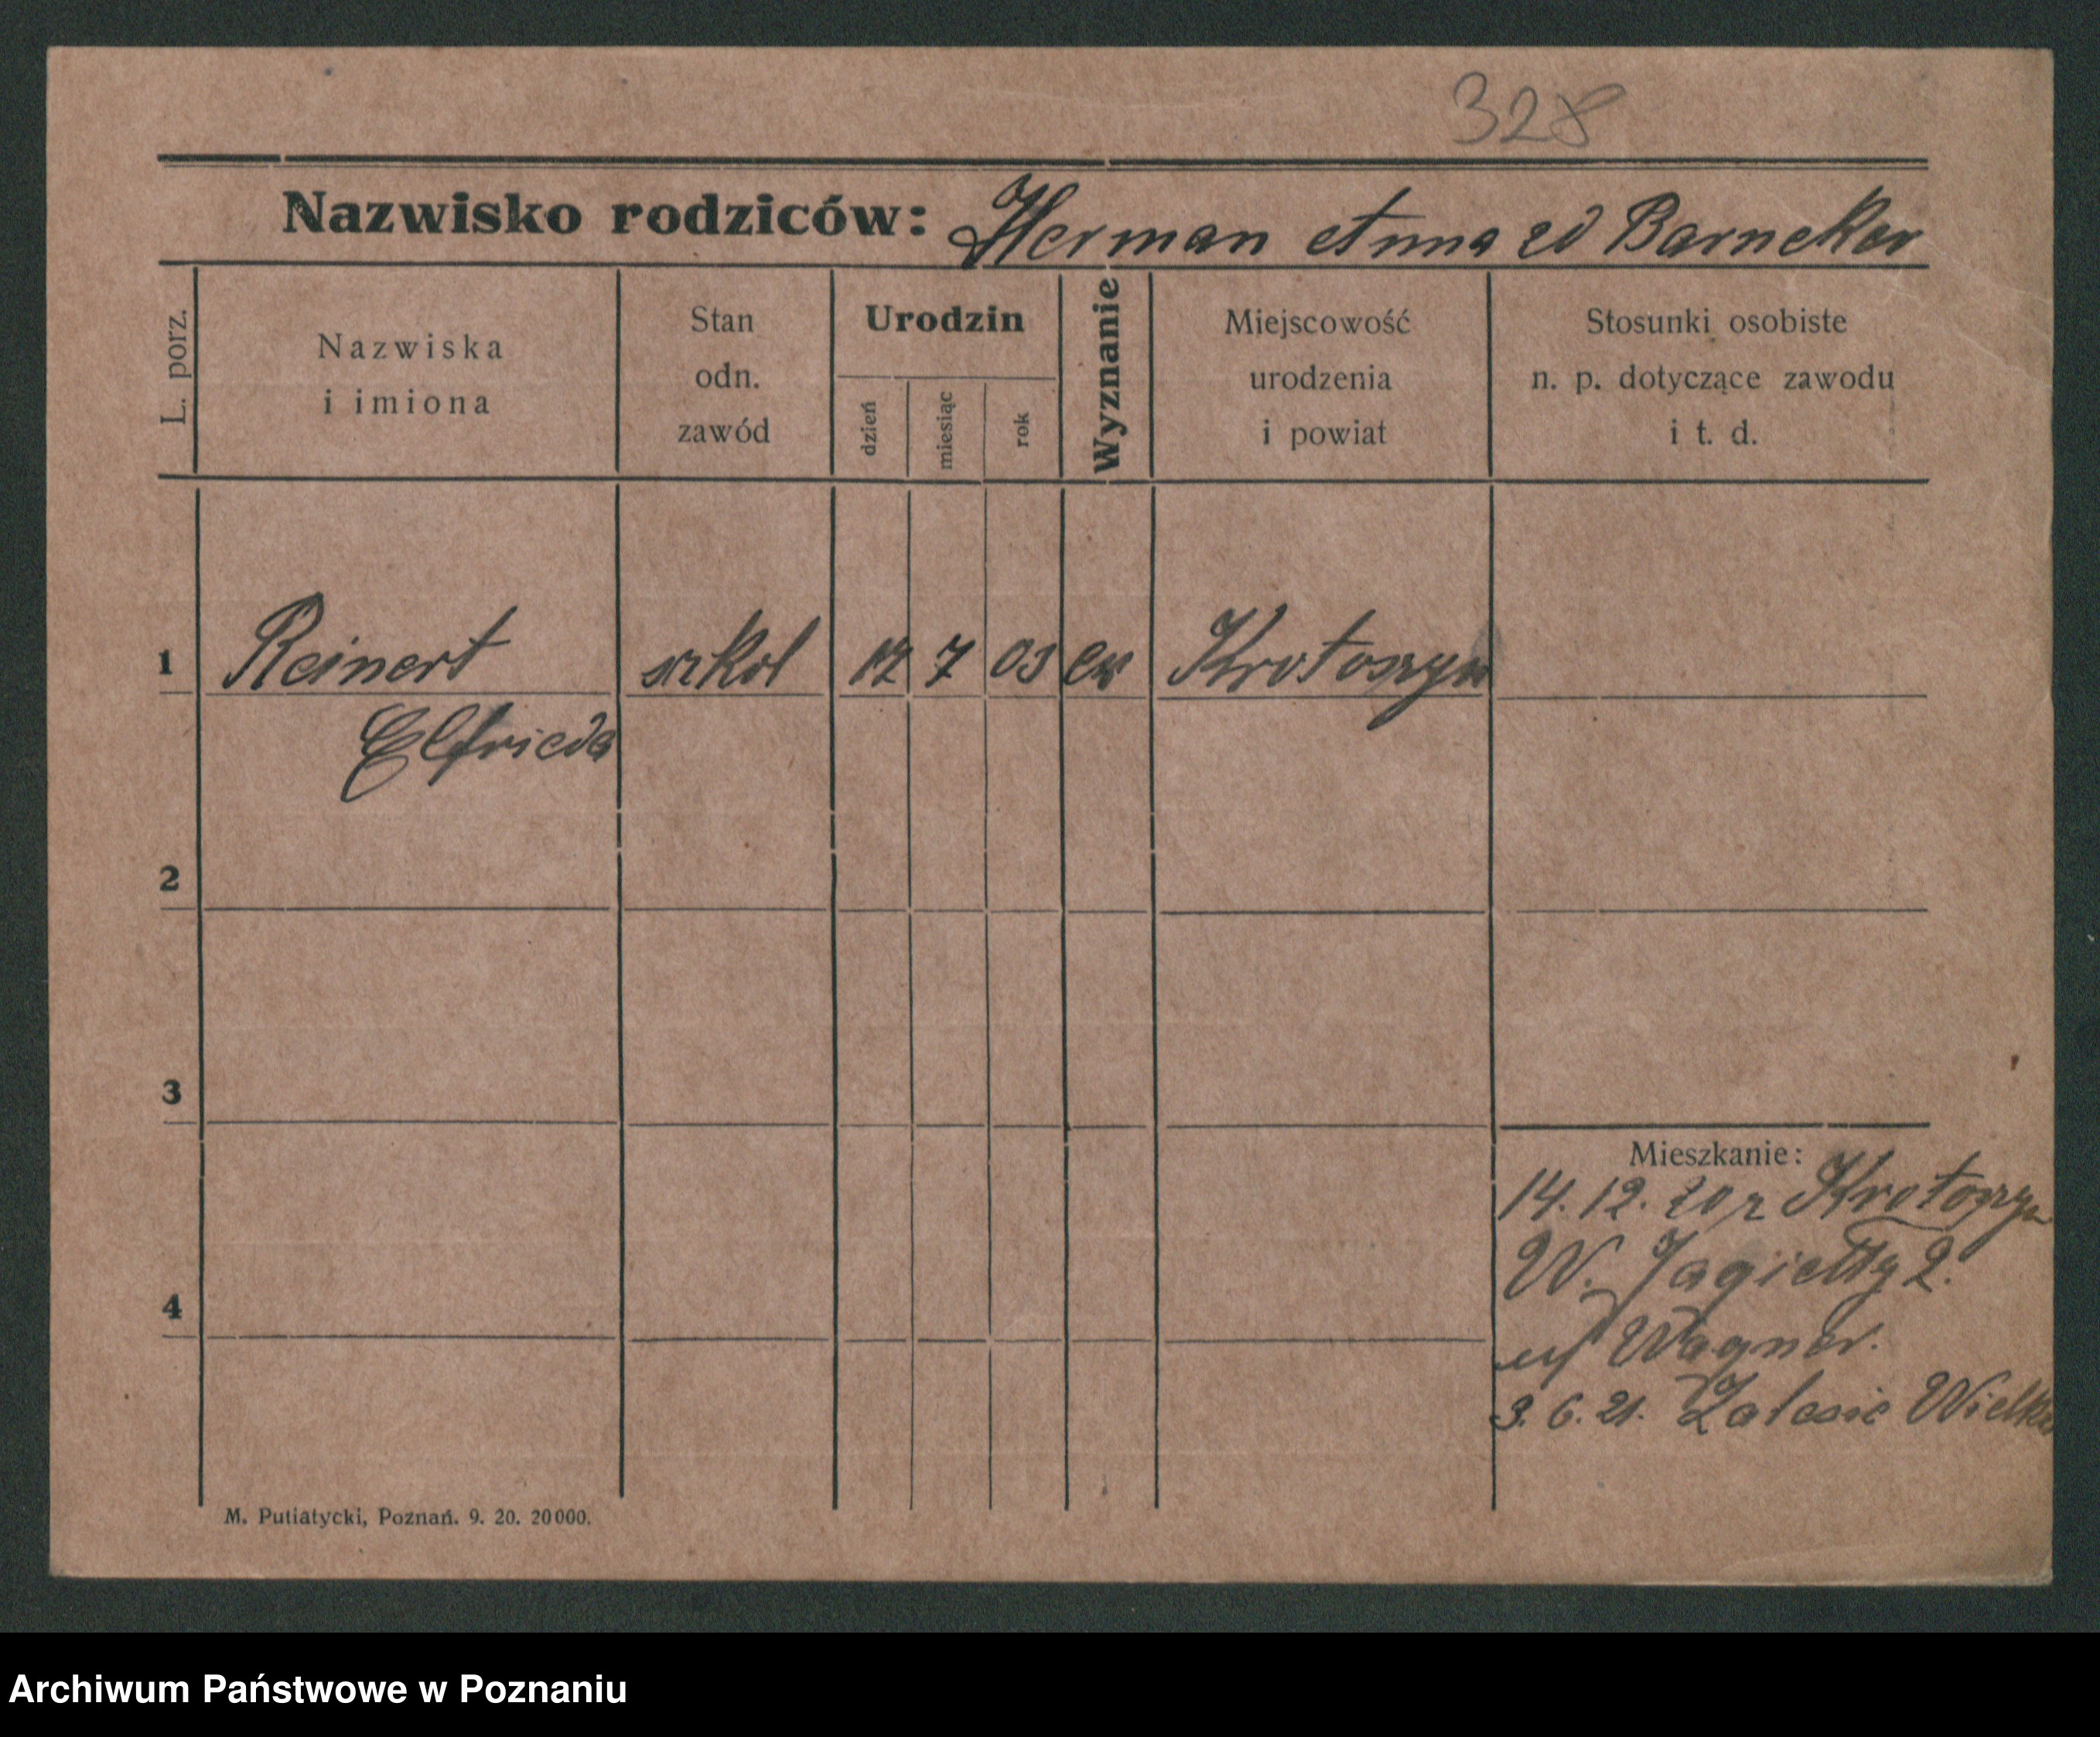 328
Nazwisko rodziców: Herman Anna zd Barneker
L. porz.
Nazwiska
i imiona
Stan
odn.
zawód
Urodzin
dzień
miesiąc
rok
Wyznanie
Miejscowość
urodzenia
i powiat
Stosunki osobiste
n. p. dotyczące zawodu
i t. d.
1 Reinert szkol 7 03 ew Krotoszyn
Elfrieda
2
3
4
Mieszkanie:
14. 12. 20 z Krotoszyn
W. Jagiełły 2.
Wagner.
3. 6. 21. Zalesie Wielkie
M. Putiatycki, Poznań. 9. 20. 20000.
Archiwum Państwowe w Poznaniu